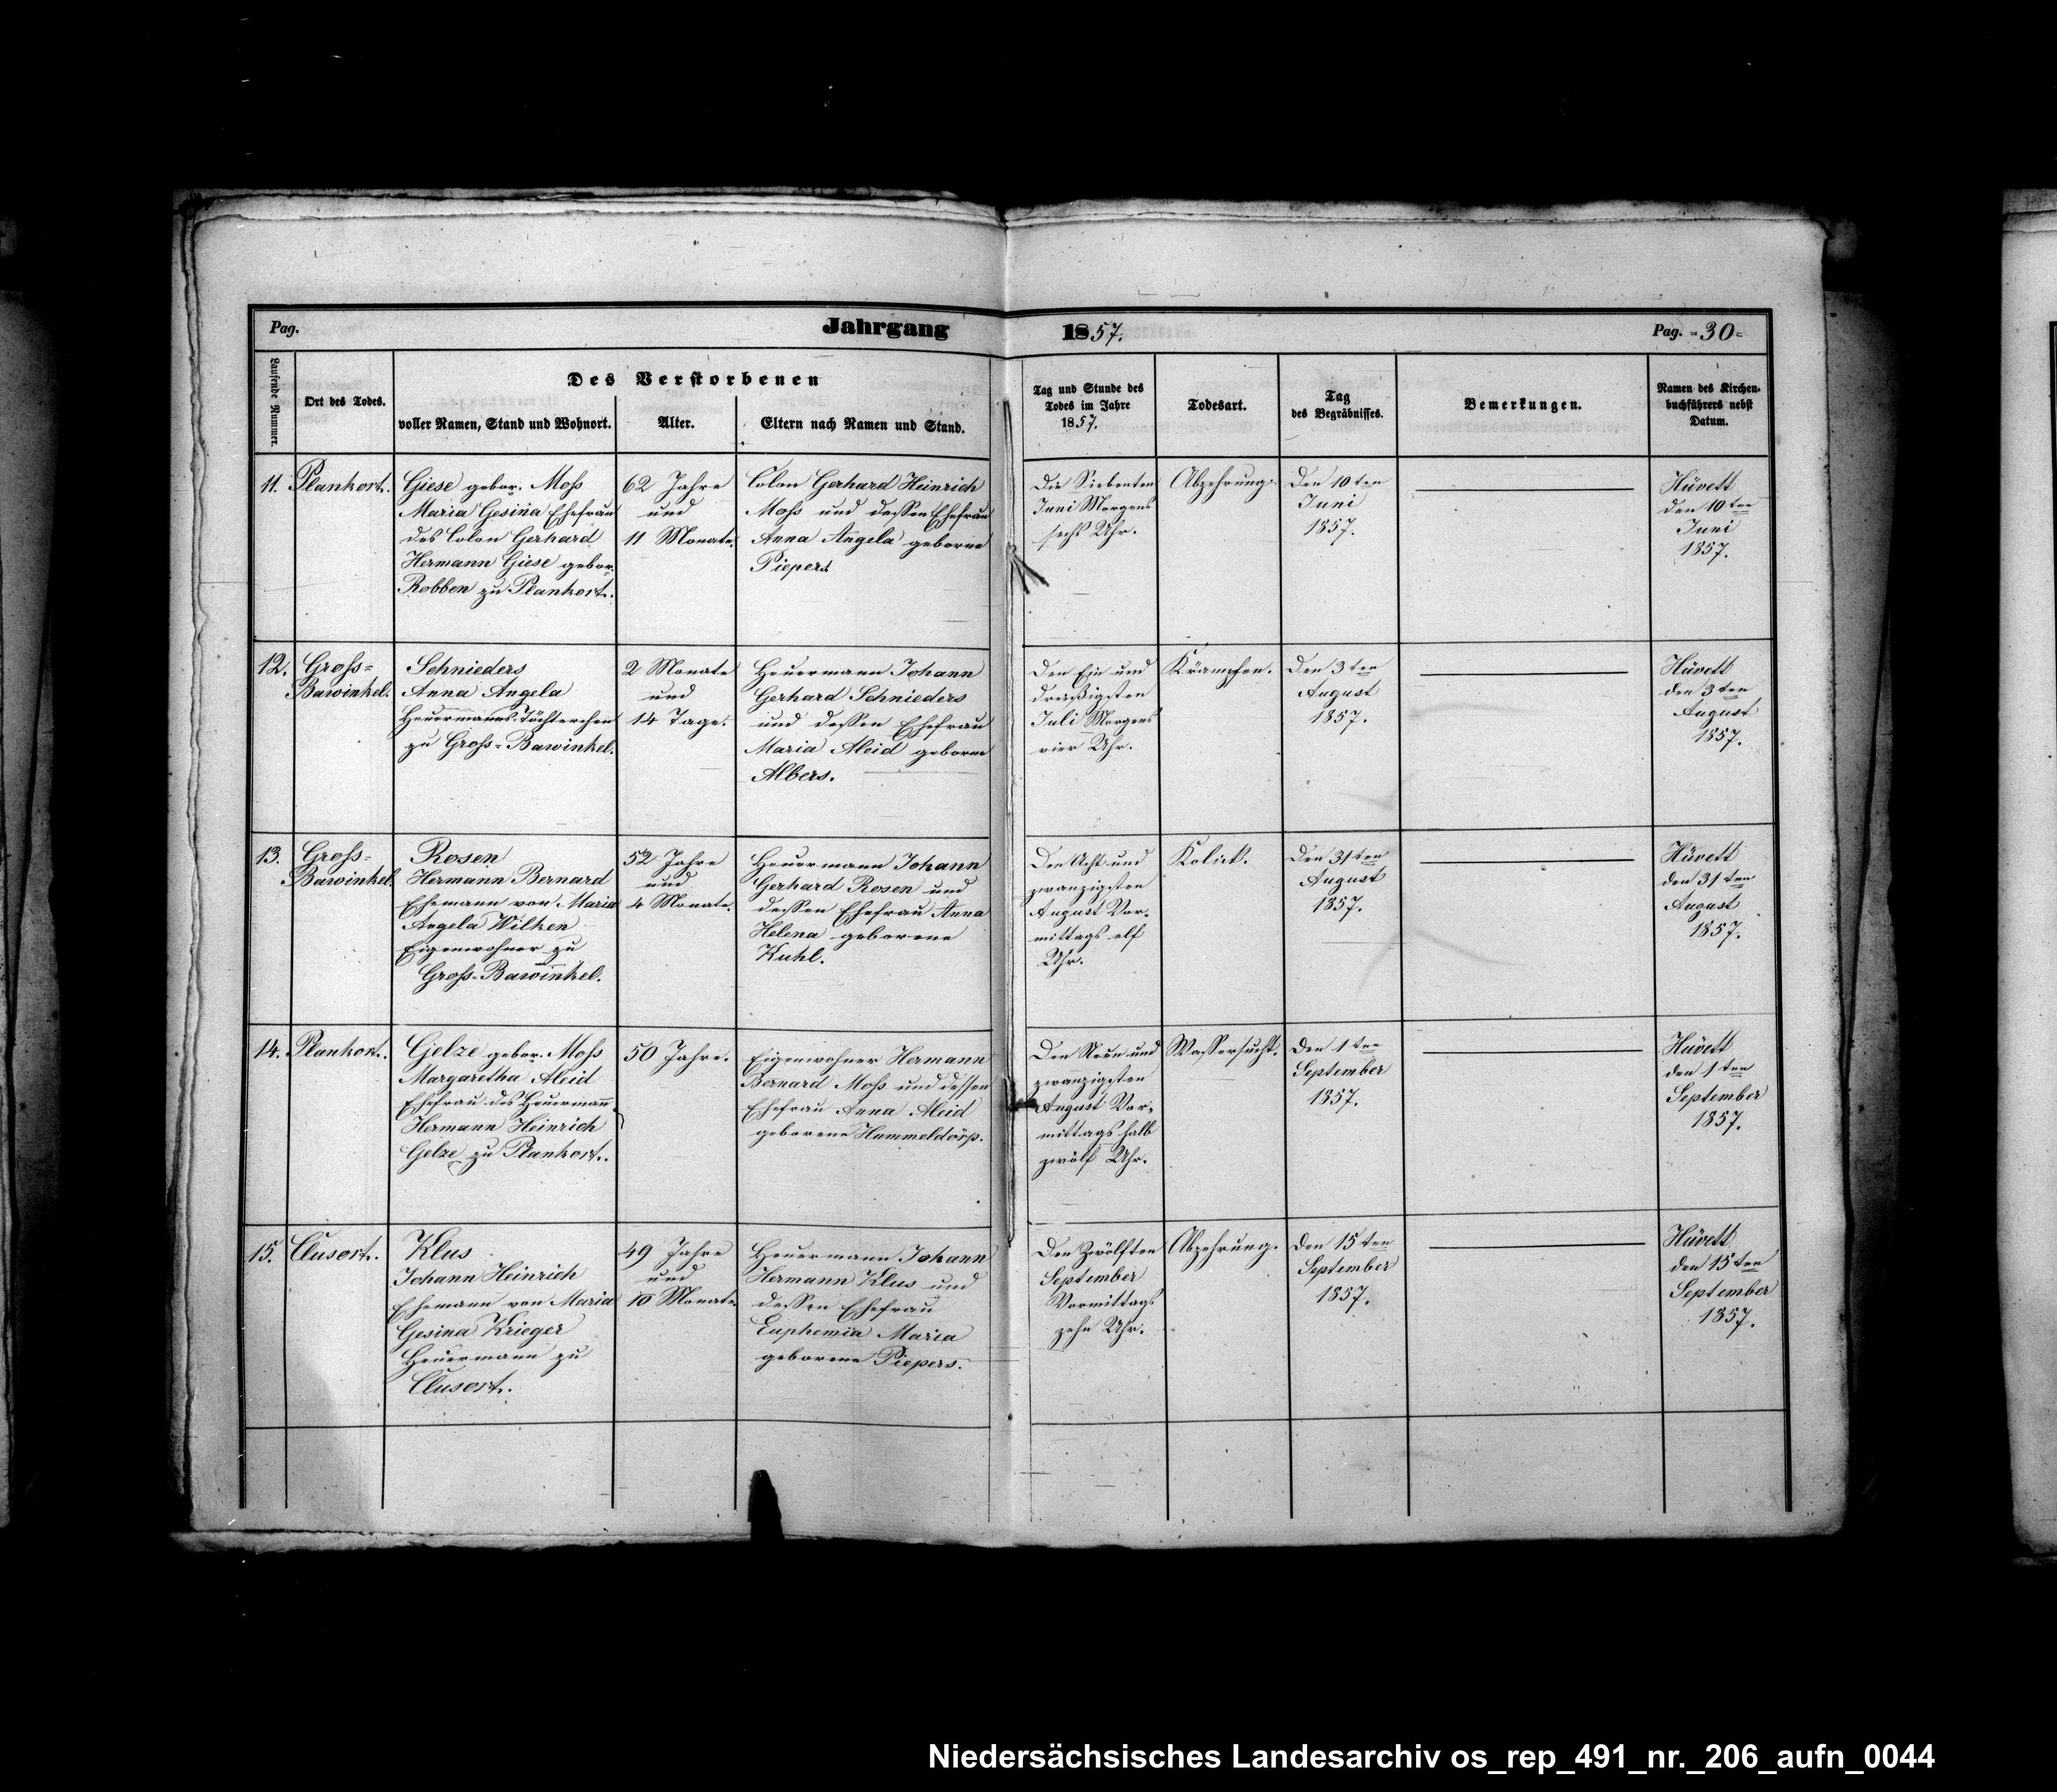 Pag.
Jahrgang 1857.
Pag. =30=
Laufende Nummer.
Ort des Todes.
Des Verstorbenen
voller Namen, Stand und Wohnort.
Alter.
Eltern nach Namen und Stand.
Tag und Stunde des
Todes im Jahre
1857.
Todesart.
Tag
des Begräbnisses.
Bemerkungen.
Namen des Kirchen-
buchführers nebst
Datum.
11.
Plankort.
Giese gebor. Moß
Maria Gesina Ehefrau
des Colon Gerhard
Hermann Giese gebor.
Robben zu Plankort.
62 Jahre
und
11 Monate.
Colon Gerhard Heinrich
Moß und dessen Ehefrau
Anna Angela geborne
Piepers
Die Siebenten
Juni Morgens
sechs Uhr.
Abzehrung.
Den 10ten
Juni
1857.
Hüvett
den 10ten
Juni
1857.
12.
Groß=
Bawinkel.
Schnieders
Anna Angela
Heuermanns-Töchterchen
zu Groß=Bawinkel.
2 Monate
und
14 Tage.
Heuermann Johann
Gerhard Schnieders
und dessen Ehefrau
Maria Aleid geborne
Albers.
Den Ein und
dreißigsten
Juli Morgens
vier Uhr.
Krämpfen.
Den 3ten
August
1857.
Hüvett
den 3ten
August
1857.
13.
Groß=
Bawinkel.
Rosen
Hermann Bernard
Ehemann von Maria
Angela Wilken
Eigenwohner zu
Groß-Bawinkel.
52 Jahre
und
4 Monate.
Heuermann Johann
Gerhard Rosen und
dessen Ehefrau Anna
Helena geborene
Kuhl.
Den Acht und
zwanzigsten
August Vor-
mittags elf
Uhr.
Kolick.
Den 31ten
August
1857.
Hüvett
den 31ten
August
1857.
14.
Plankort.
Gjelze gebor. Moß
Margaretha Aleid
Ehefrau des Heuermann
Hermann Heinrich
Gelze zu Plankort.
50 Jahre.
Eigenwohner Hermann
Bernard Moß und dessen
Ehefrau Anna Aleid
geborene Hummeldorp.
Den Neun und
zwanzigsten
August Vor-
mittags halb
zwölf Uhr.
Wassersucht.
Den 1ten
September
1857.
Hüvett
den 1ten
September
1857.
15.
Clusort.
Klus
Johann Heinrich
Ehemann von Maria
Gesina Krieger
Heuermann zu
Clusort.
49 Jahre
und
10 Monate.
Heuermann Johann
Hermann Klus und
dessen Ehefrau
Euphemia Maria
geborene Piepers.
Den Zwölften
September
Vormittags
zehn Uhr.
Abzehrung.
Den 15ten
September
1857.
Hüvett
den 15ten
September
1857.
Niedersächsisches Landesarchiv os_rep_491_nr._206_aufn_0044